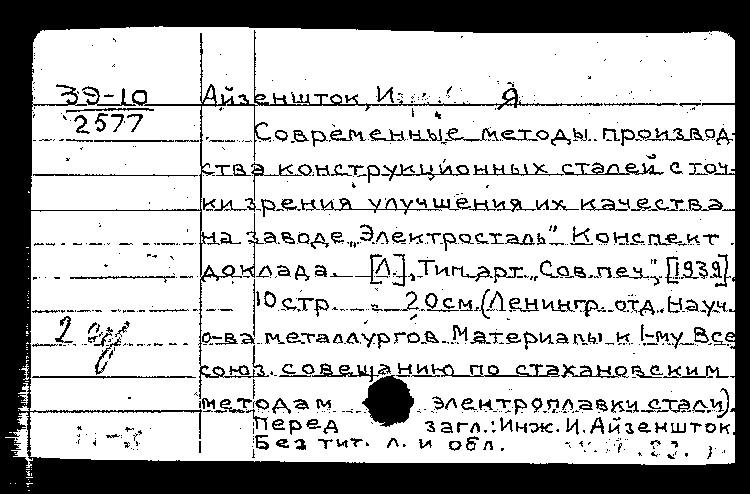 39-10
2577
Айзеншток, И Я
Современные методы производ-
ства конструкционных сталей с точ-
ки зрения улучшения их качества
на заводе „Электросталь" Конспект
доклада. [Л.], Тип. арт. „Сов. печ", [1939].
10 стр. 20 см. (Ленингр. отд. Науч.
о-ва металлургов. Материалы к I-му Все
союз. совещанию по стахановским
методам электроплавки стали).
Перед загл.: Инж. И. Айзеншток.
Без тит. л. и обл.